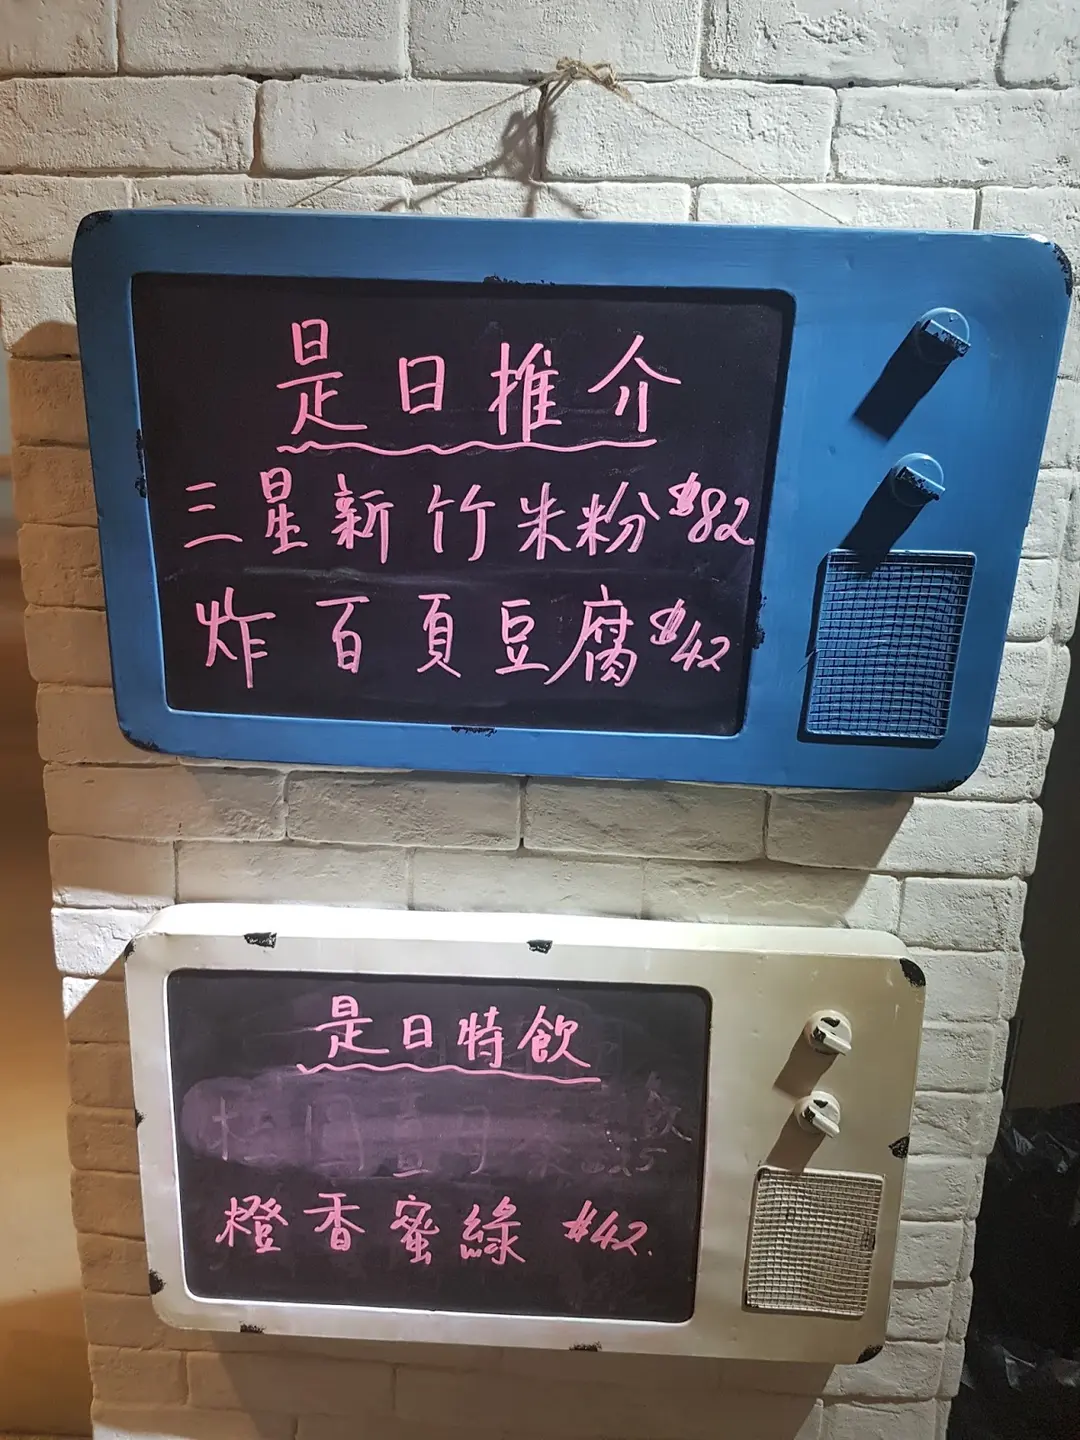 是日推介
三星新竹米粉 $82
炸百頁豆腐 $42
是日特飲
橙香蜜綠 $42.